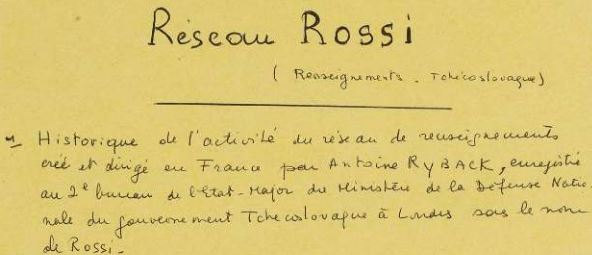 Réseau Rossi
( Renseignements - Tchécoslovaque)
1 Historique de l'activité du réseau de renseignements
créé et dirigé en France par Antoine RyBACK, enregistré
au 2e bureau de l'Etat-Major du Ministère de la Défense Natio-
nale du gouvernement Tchécoslovaque à Londres sous le nom
de Rossi.